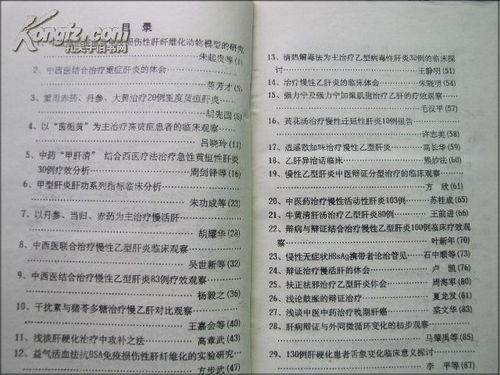 Kongfz.com
孔夫子旧书网
目 录
损伤性肝纤维化动物模型的研究
朱起贵等(1)
2、中西医结合治疗重症肝炎的体会
蔡芳才(4)
3、重用赤药、丹参、大黄治疗20例重度黄疸肝炎
胡先国(8)
4、以“茵栀黄”为主治疗高黄疸患者的临床观察
吕晓玲(11)
5、中药“甲肝清”结合西医疗法治疗急性黄疸性肝炎
30例疗效分析
周剑锋等(16)
6、甲型肝炎肝功系列指标临床分析
朱功成等(21)
7、以丹参、当归、赤药为主治疗慢活肝
胡耀华(28)
8、中西医联合治疗慢性乙型肝炎临床观察
吴世新等(32)
9、中西医结合治疗慢性乙型肝炎83例疗效观察
杨毅之(36)
10、干扰素与猪苓多糖治疗慢乙肝对比观察
王嘉会等(40)
11、浅谈肝硬化治疗中攻补之法
高章武(43)
12、益气活血法抗BSA免疫损伤性肝纤维化的实验研究
方步武(47)
13、清热解毒法为主治疗乙型病毒性肝炎30例的临床探
讨
王静明(51)
14、治疗慢性乙型肝炎的临床体会
朱晓明(54)
15、强力宁及强力宁加聚肌胞治疗乙肝的疗效观察
毛汉平(57)
16、黄花汤治疗慢性迁延性肝炎10例报告
许志美(58)
17、逍遥散加味治疗慢性乙型肝炎
高长华(59)
18、乙肝异治话临床
熊妙法(60)
19、慢性乙型肝炎中医辨证分型治疗的临床观察
方 欣(61)
20、中医药治疗慢性活动性肝炎103例
苏桂成(65)
21、牛黄清肝汤治疗乙型肝炎80例
王前进(66)
22、辩病与辩证结合治疗慢性乙型肝炎100例临床疗效观
察
叶新年(70)
23、慢性无症状HBsAg携带者论治管见
石中顺等(73)
24、辩证治疗慢活肝的体会
卢 凯(76)
25、扶正祛邪治疗乙型肝炎体会
周海军(80)
26、浅论鼓胀的辩证治疗
夏龙发(81)
27、浅谈中医中药治疗晚期肝癌
盛文华(83)
28、肝病辩证与外周微循环变化的初步观察
马肇禹等(85)
29、130例肝硬化患者舌象变化临床意义探讨
李 平等(87)